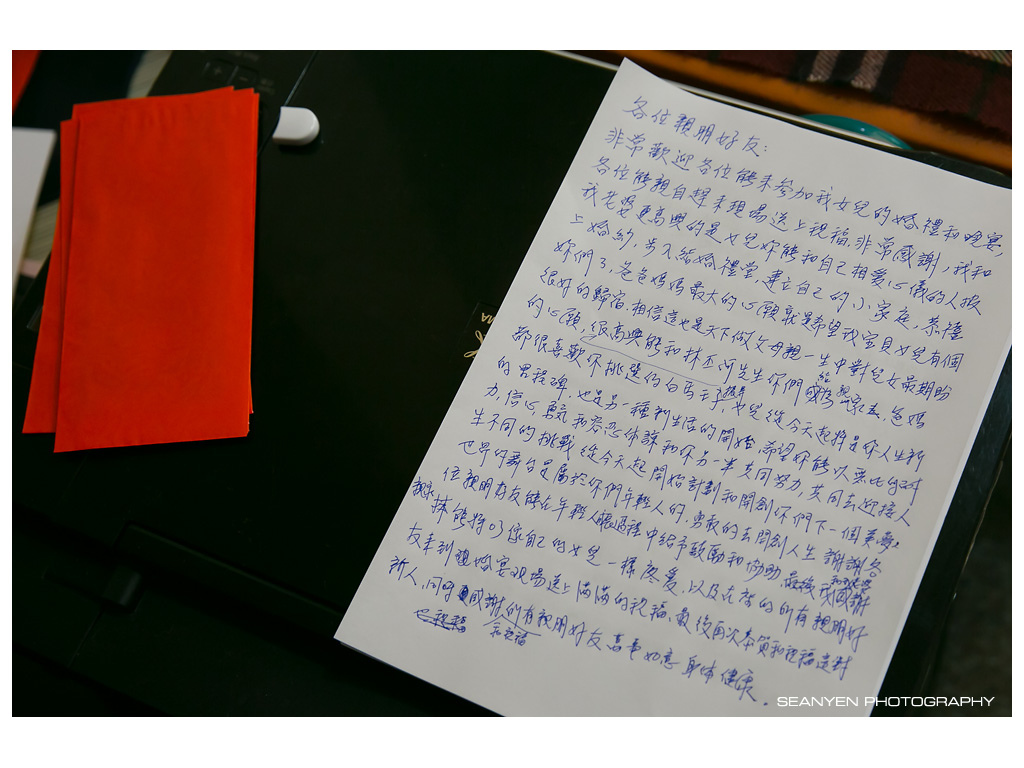 各位親朋好友：
非常歡迎各位能來參加我女兒的婚禮和晚宴，
各位能親自趕來現場送上祝福，非常感謝，我和
我老婆更高興的是女兒妳能和自己相愛心儀的人掀
上婚約，步入結婚禮堂，建立自己的小家庭，恭禧
妳們了，爸爸媽媽最大的心願就是希望我寶貝女兒有個
很好的歸宿，相信這也是天下做父母親一生中對兒女最期盼
的心願，很高興能和林 先生你們成為親家，爸媽
都很喜歡你挑選的白馬王子，女兒從今天起將是你人生新
的里程碑，也是另一種新生活的開始，希望妳能以無比的
力，信心，勇氣和容忍体諒和你另一半共同努力，共同去迎接人
生不同的挑戰從今天起開始計劃和開創你們下一個美夢，
世界的舞台是屬於你們年輕人的，勇敢的去開創人生 謝謝各
位親朋好友能在年輕人 過程中給予鼓勵和協助，最後我
能將 像自己的女兒一樣疼愛，以及在 的所有親朋好
友來到 婚宴現場送上滿滿的祝福，最後再次恭賀和祝福這對
新人，同時感謝所有親朋好友 萬事如意 身体健康。
和祝福
SEANYEN PHOTOGRAPHY